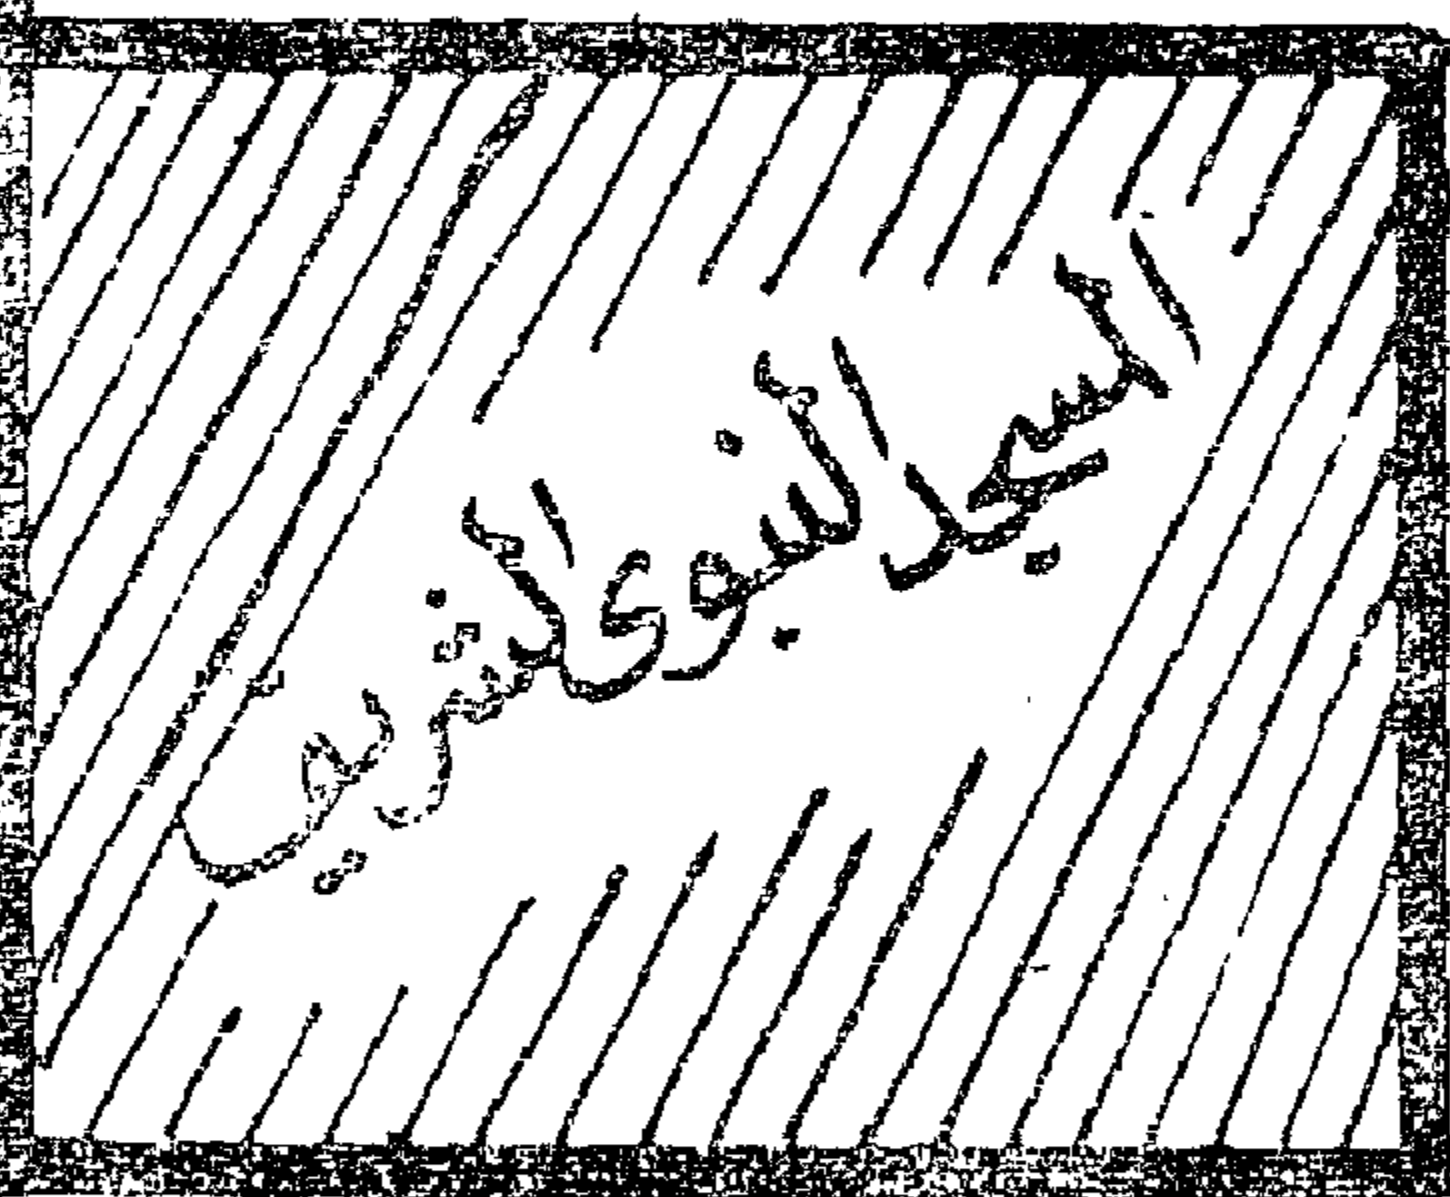 المسجد النبوى الشريف